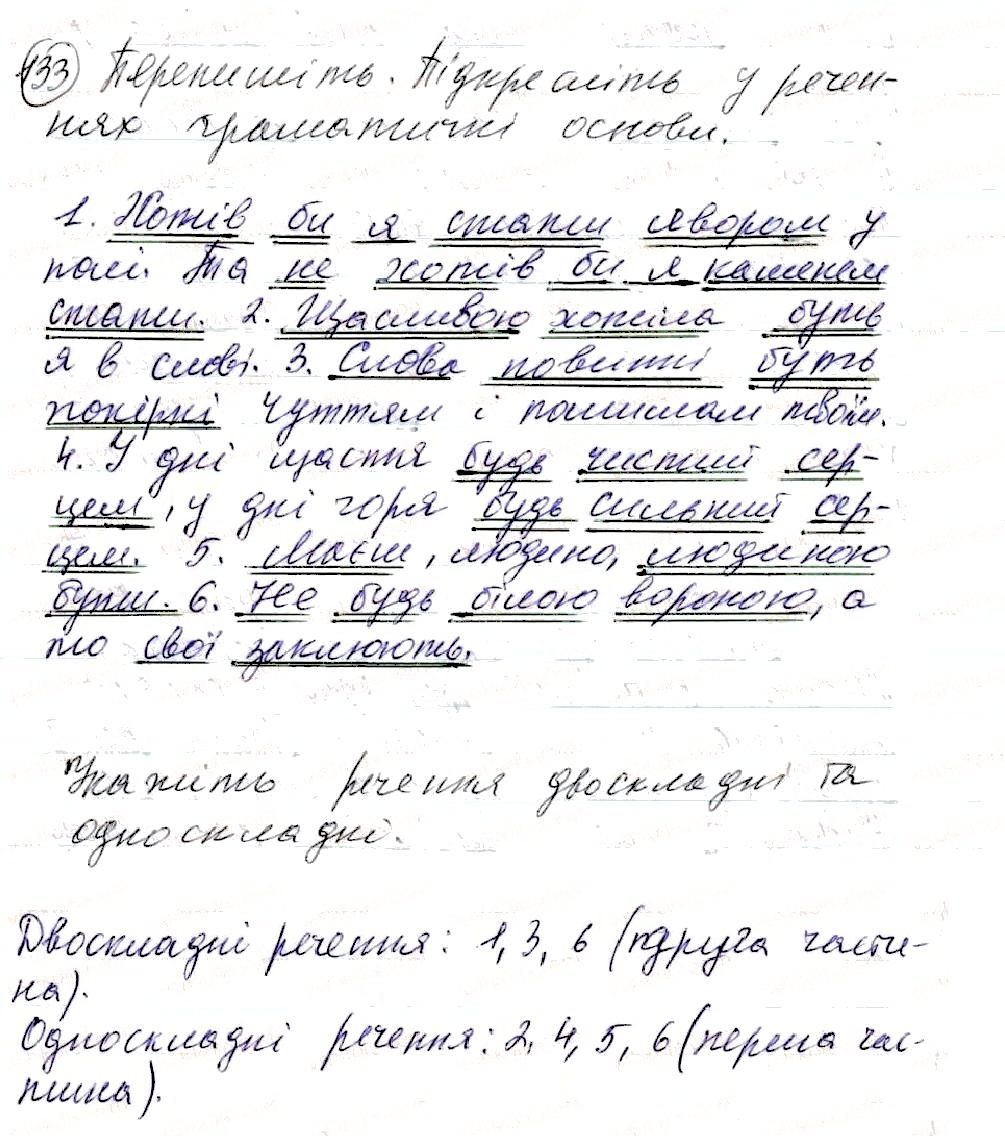 133 Перепишіть. Підкресліть у речен-
нях граматичні основи.
1. Хотів би я стати явором у
полі. Та не хотів би я каменем
стати. 2. Щасливою хотіла буть
я в слові. 3. Слова повинні буть
покірні чуттям і помислам твоїм.
4. У дні щастя будь чистий сер-
цем, у дні горя будь сильний сер-
цем. 5. Маєш, людино, людиною
бути. 6. Не будь білою вороною, а
то свої заклюють.
Укажіть речення двоскладні та
односкладні.
Двоскладні речення: 1, 3, 6 (друга части-
на).
Односкладні речення: 2, 4, 5, 6 (перша час-
тина).